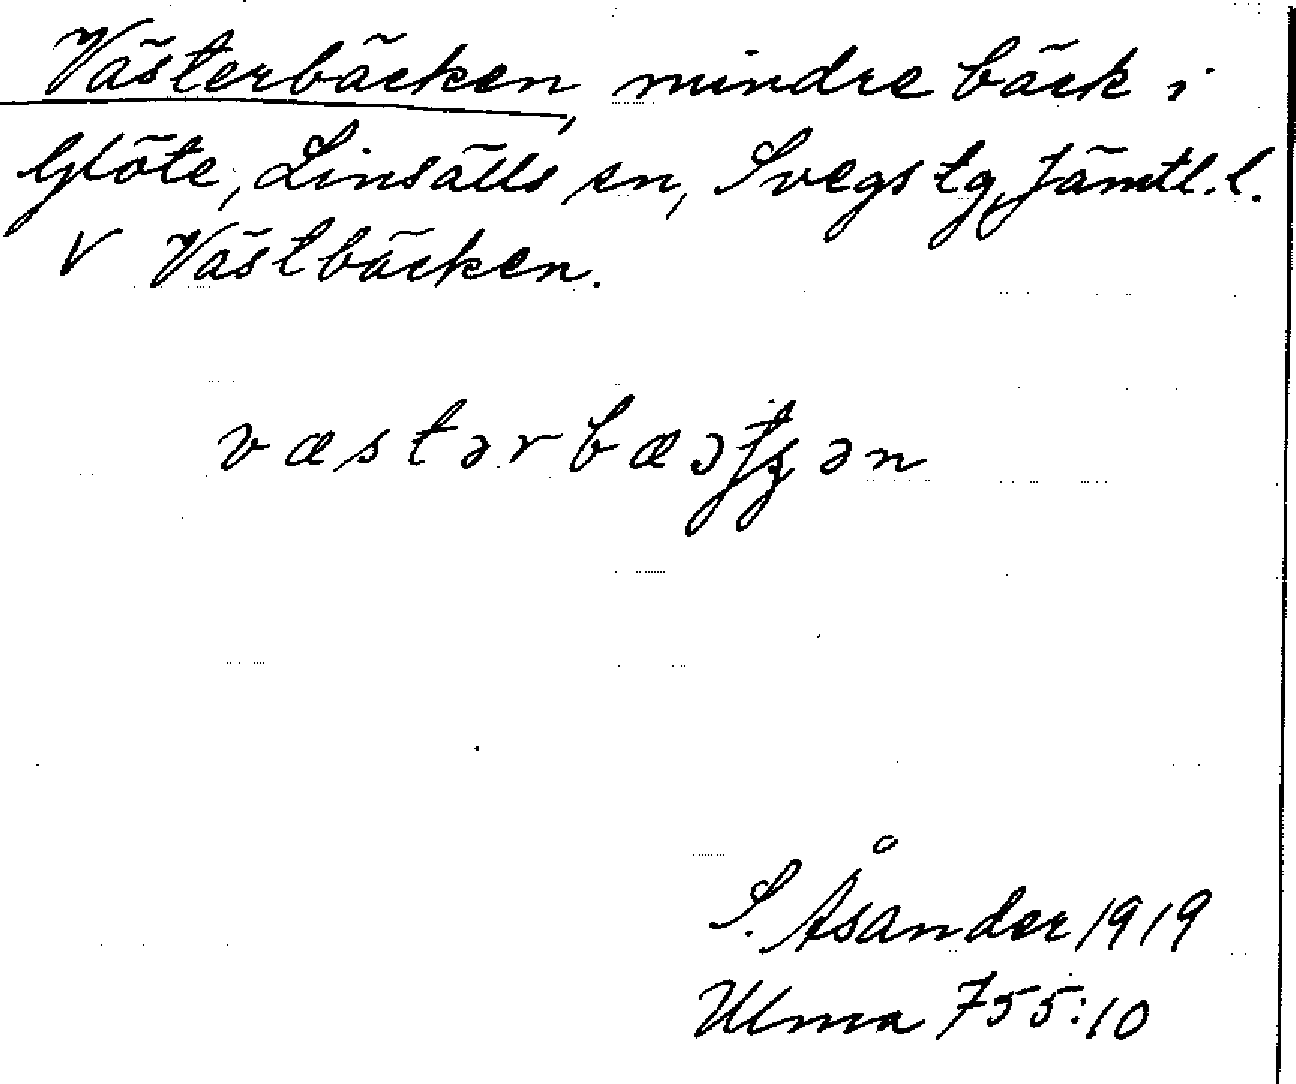 Västerbäcken, mindre bäck i
Glöte, Linsälls sn, Svegs tg, Jämtl. l.
V Västbäcken.
væstərbæ
S. Åsander 1919
Ulma 755:10